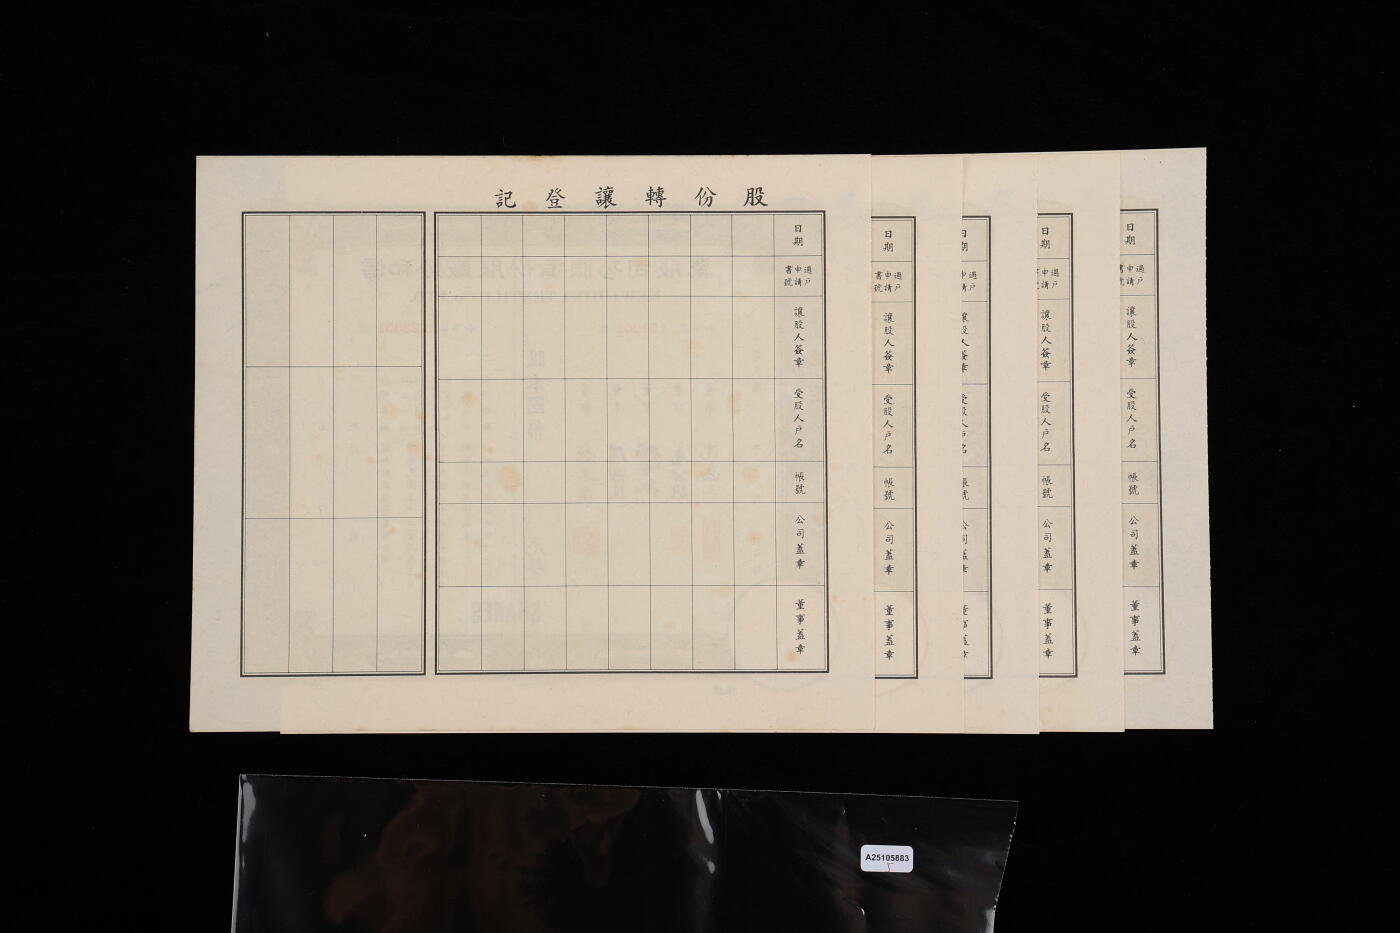 股份轉讓登記
日期
過戶申請書號
讓股人簽章
受股人戶名
帳號
公司蓋章
董事蓋章
日期
過戶申請書號
讓股人簽章
受股人戶名
帳號
公司蓋章
董事蓋章
日期
讓股人簽章
受股人戶名
帳號
公司蓋章
董事蓋章
日期
過戶申請書號
讓股人簽章
受股人戶名
帳號
公司蓋章
董事蓋章
日期
過戶申請書號
讓股人簽章
受股人戶名
帳號
公司蓋章
董事蓋章
A25105883
5